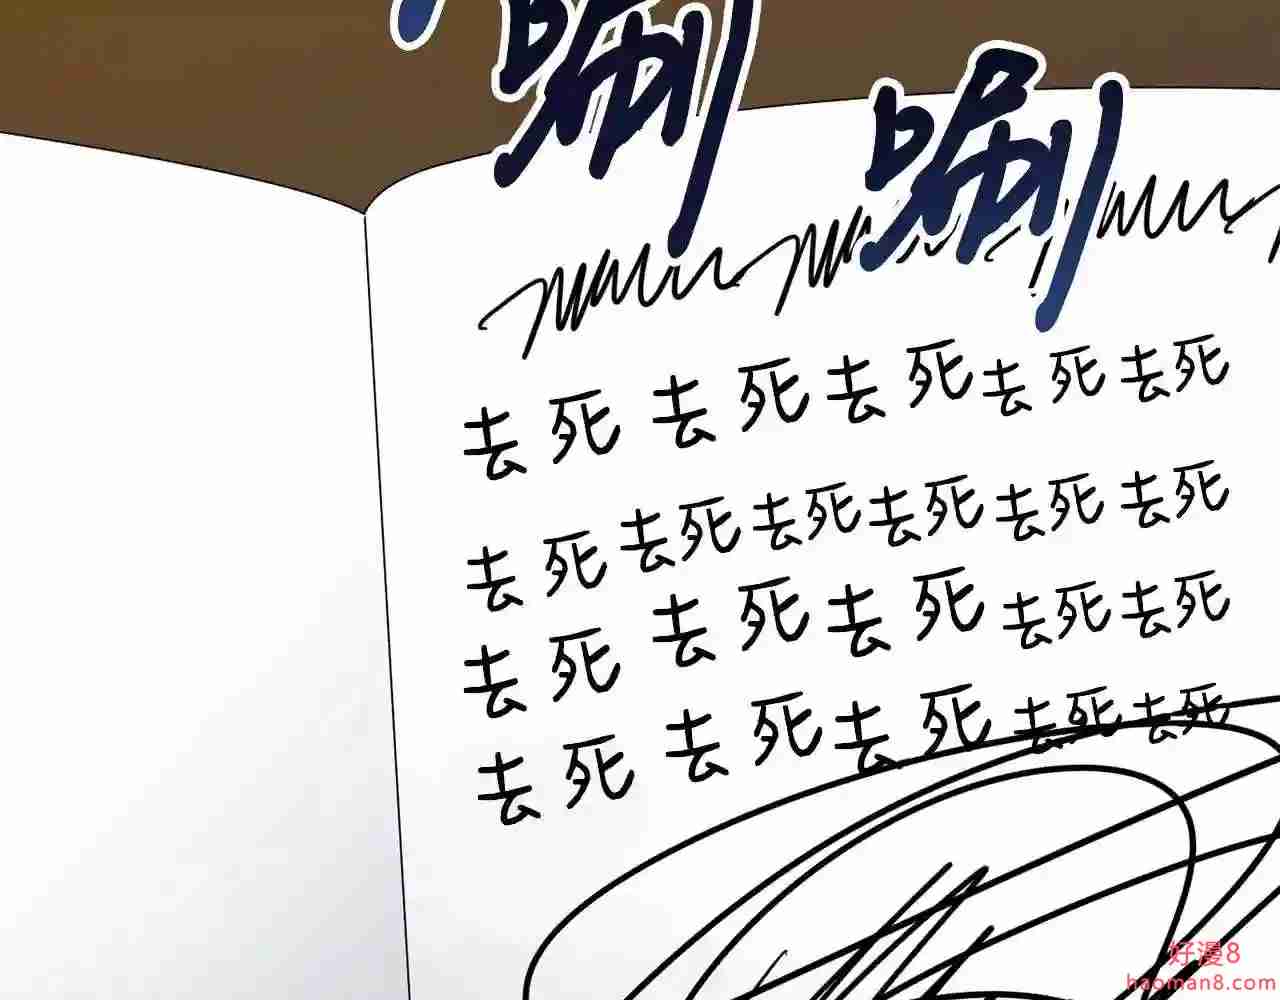 唰
唰
去死去死去死去死去死
去死去死去死去死去死去死
去死去死去死去死去死
去死去死去死去死去死
好漫8
haoman8.com